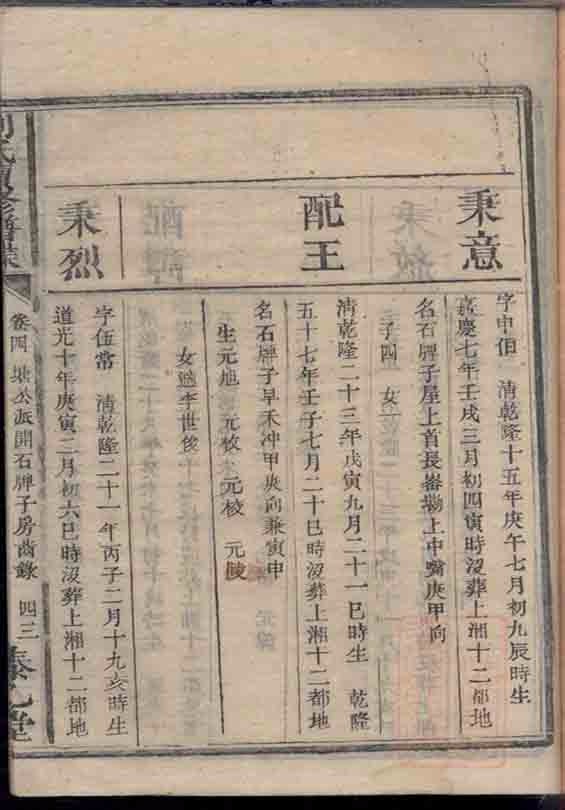 秉意
字中佀　清乾隆十五年庚午七月初九辰時生
嘉慶七年壬戌三月初四寅時沒葬上湘十二都地
名石牌子屋上首長崙坳上中嘴庚甲向
子四　女一
配王
清乾隆二十三年戊寅九月二十一巳時生　乾隆
五十七年壬子七月二十巳時沒葬上湘十二都地
名石牌子早禾冲甲庚向兼寅申
生元旭　元攸　元校　元陵
女適李世俊
秉烈
字伍常　清乾隆二十一年丙子二月十九亥時生
道光十年庚寅二月初六巳時沒葬上湘十二都地
氏修譜錄
卷四　公派開石牌子房齒錄　四三
堂